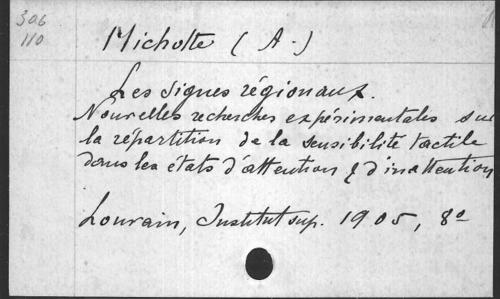 306
110
Michotte (A.)
Les signes régionaux.
Nouvelles recherches expérimentales sur
la répartition de la sensibilité tactile
dans les états d'attention & d'inattention
Louvain, Institut sup. 1905, 8º